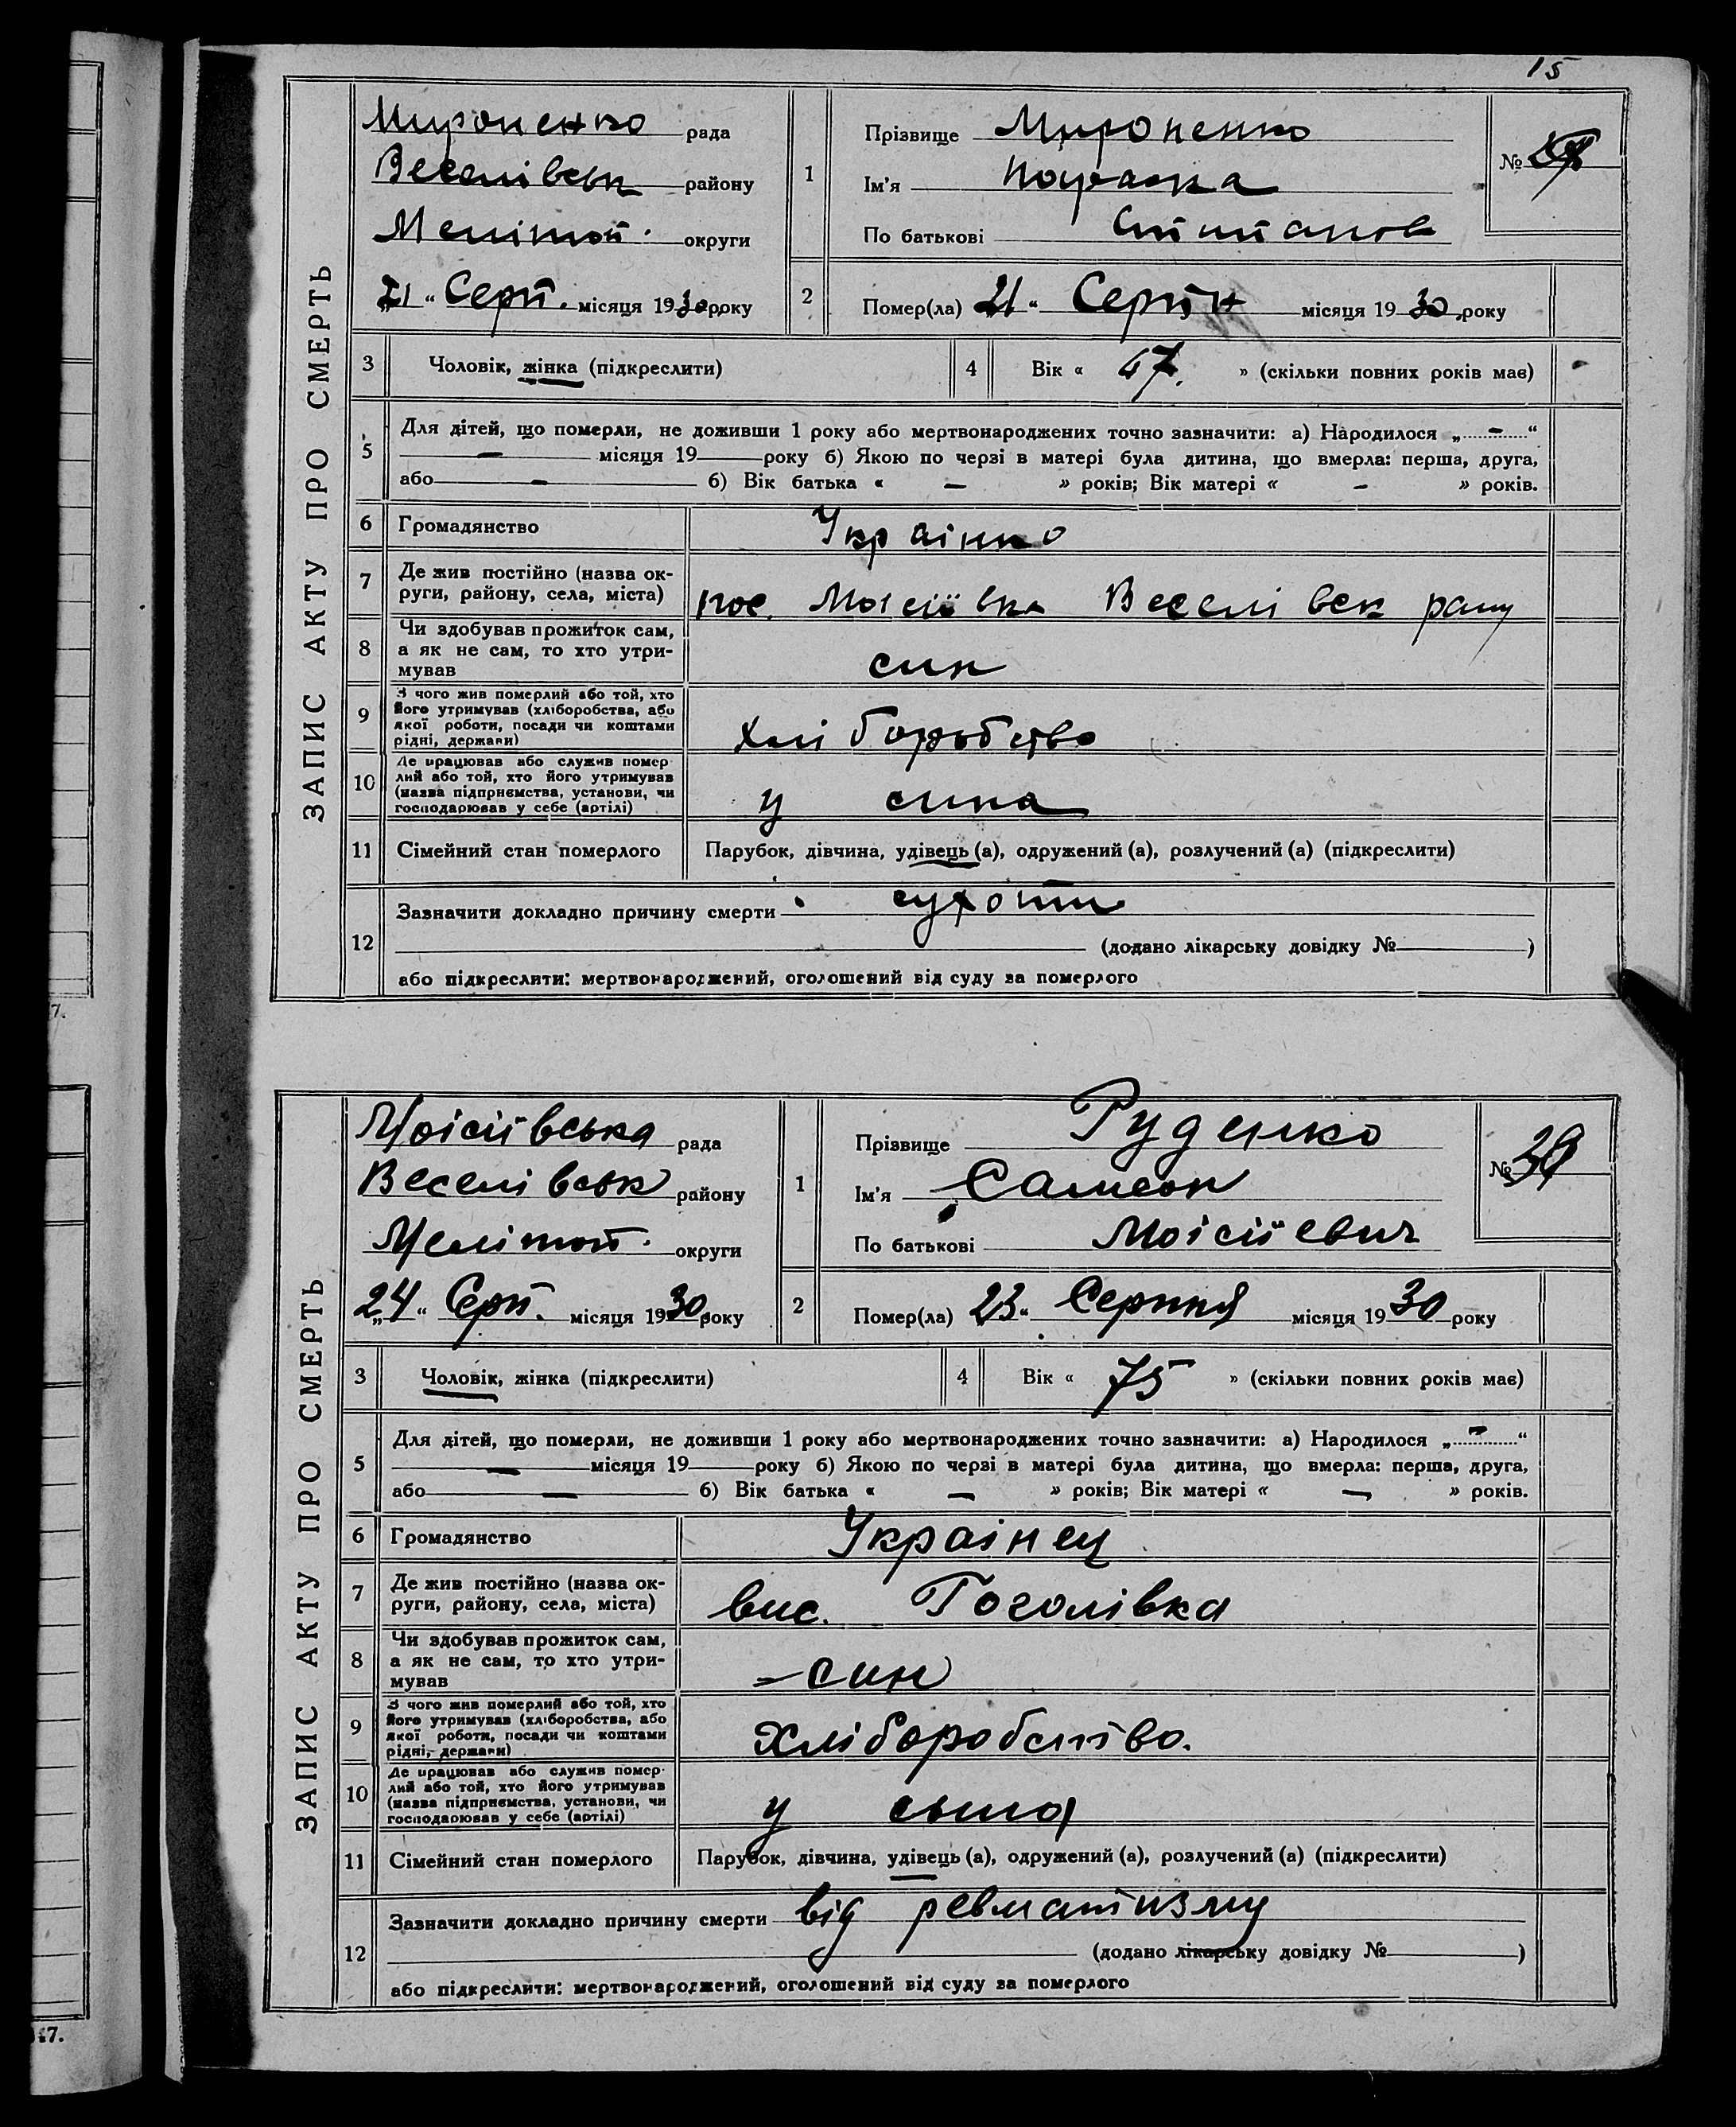 15
ЗАПИС АКТУ ПРО СМЕРТЬ
Мироненко рада
Веселівськ району
Меліtoп. округи
21 " Серп. місяця 1930 року
1
Прізвище Мироненко
Ім'я
По батькові
№
2
Помер(ла) 21 " Серпн місяця 19 30 року
3 Чоловік, жінка (підкреслити)
4 Вік « 67 » (скільки повних років має)
5 Для дітей, що померли, не доживши 1 року або мертвонароджених точно зазначити: а) Народилося „ - “
— місяця 19 року б) Якою по черзі в матері була дитина, що вмерла: перша, друга,
або — б) Вік батька « — » років; Вік матері « — » років.
6 Громадянство Українко
7 Де жив постійно (назва ок-
руги, району, села, міста) пос. Моісіївка Веселівск рану
8 Чи здобував прожиток сам,
а як не сам, то хто утри-
мував син
9 З чого жив померлий або той, хто
його утримував (хліборобства, або
якої роботи, посади чи коштами
рідні, держави) хліборобство
10 Де працював або служив помер-
лий або той, хто його утримував
(назва підприємства, установи, чи
господарював у себе (артілі) у сина
11 Сімейний стан померлого Парубок, дівчина, удівець (а), одружений (а), розлучений (а) (підкреслити)
12 Зазначити докладно причину смерти сухоти
(додано лікарську довідку № )
або підкреслити: мертвонароджений, оголошений від суду за померлого
ЗАПИС АКТУ ПРО СМЕРТЬ
Моісіївська рада
Веселівськ району
Меліtoп. округи
24 " Серп. місяця 1930 року
1
Прізвище Руденко
Ім'я Самсон
По батькові Моісіївич
№ 39
2
Помер(ла) 23 " Серпня місяця 19 30 року
3 Чоловік, жінка (підкреслити)
4 Вік « 75 » (скільки повних років має)
5 Для дітей, що померли, не доживши 1 року або мертвонароджених точно зазначити: а) Народилося „ - “
— місяця 19 року б) Якою по черзі в матері була дитина, що вмерла: перша, друга,
або — б) Вік батька « — » років; Вік матері « — » років.
6 Громадянство Українец
7 Де жив постійно (назва ок-
руги, району, села, міста) вис. Гоголівка
8 Чи здобував прожиток сам,
а як не сам, то хто утри-
мував - син
9 З чого жив померлий або той, хто
його утримував (хліборобства, або
якої роботи, посади чи коштами
рідні, держави) Хліборобство.
10 Де працював або служив помер-
лий або той, хто його утримував
(назва підприємства, установи, чи
господарював у себе (артілі) у сына
11 Сімейний стан померлого Парубок, дівчина, удівець (а), одружений (а), розлучений (а) (підкреслити)
12 Зазначити докладно причину смерти від ревматизму
(додано лікарську довідку № )
або підкреслити: мертвонароджений, оголошений від суду за померлого
7.
17.